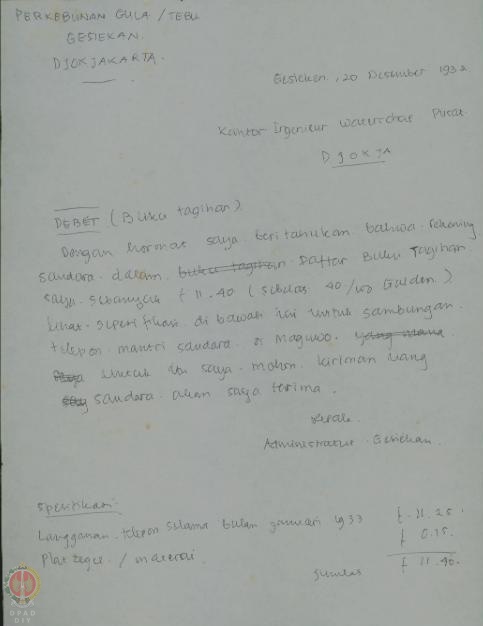 PERKEBUNAN GULA / TEBU
GESIEKAN.
DJOKJAKARTA.
Gesieken, 20 Desember 1932
Kantor Ingenieur Waterschap Pusat
DJOKJA
DEBET (Buku tagihan)
Dengan hormat saya beritahukan bahwa rekening
saudara dalam buku tagihan Daftar Buku Tagihan
saya sebanyak f 11.40 (sebelas 40/100 Gulden)
lihat spesifikasi di bawah ini untuk sambungan
telepon mantri saudara di Maguwo. yang mana
untuk itu saya mohon kiriman uang
saudara akan saya terima.
Kepala
Administratur Gesiekan.
Spesifikasi
Langganan telepon selama bulan Januari 1933 f. 11.25
Plak zegel / materai f 0.15
Jumlah f 11.40.
DPAD
DIY